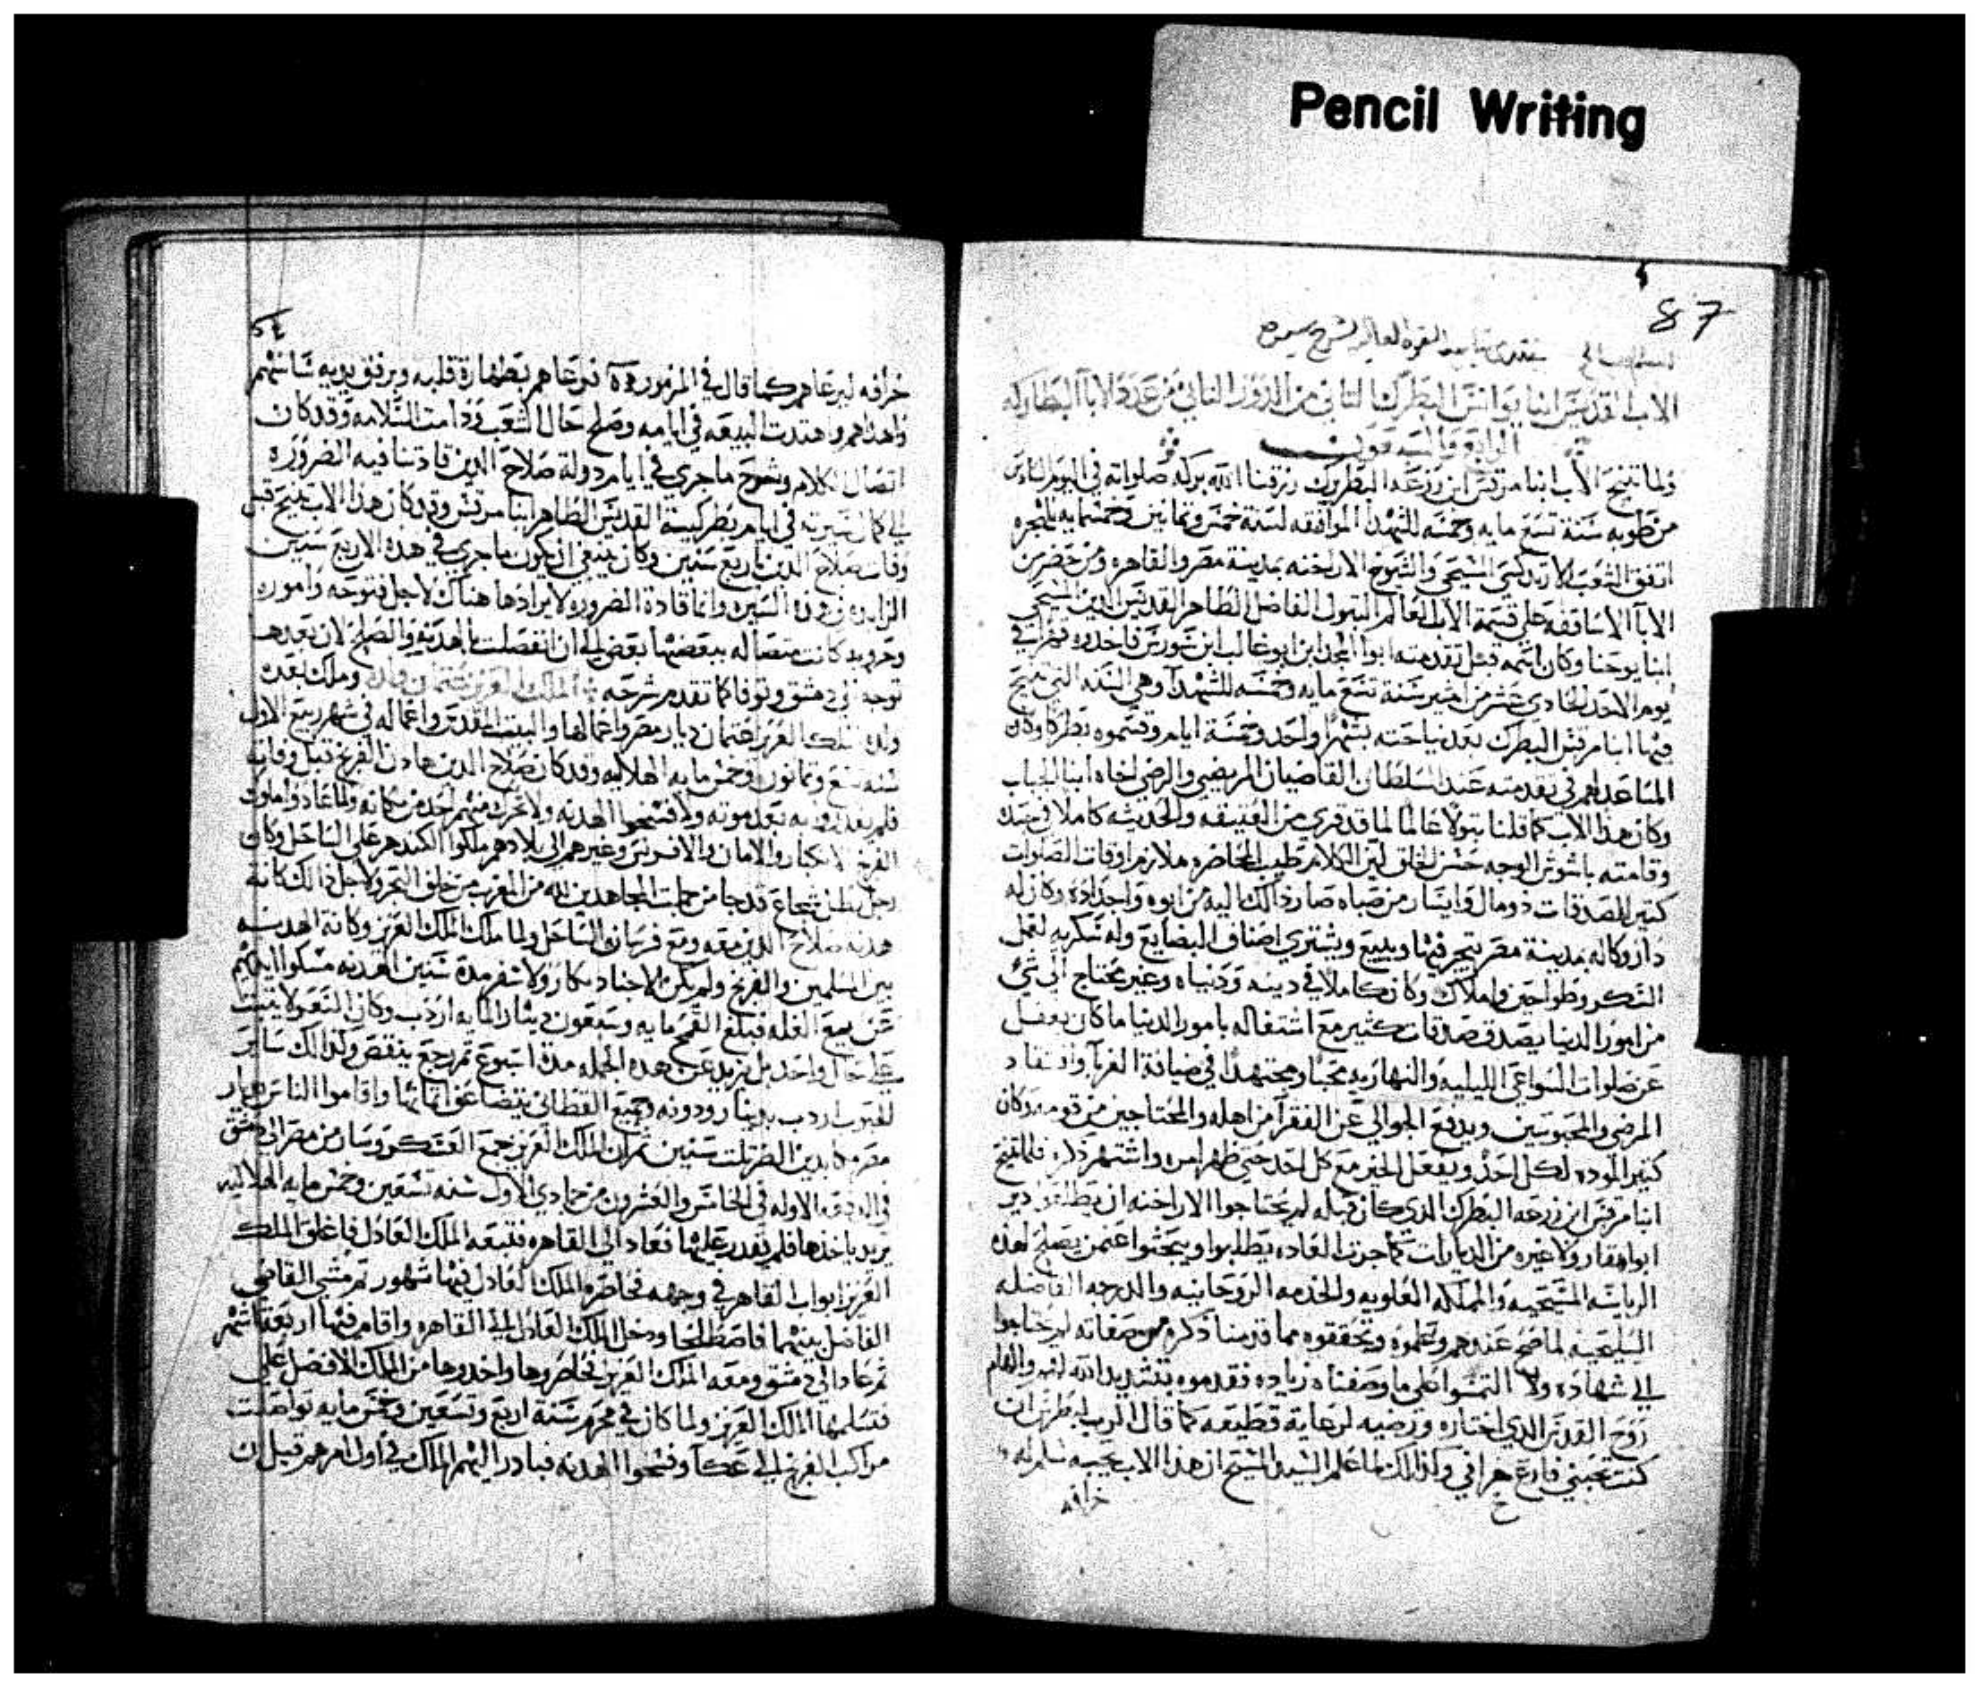 Pencil Writing
87
الاب القديس انبا يوانس البطرك الثاني من الدور الثاني من عدد الابا البطاركه
الرابع والسبعون
ولما تنيح الأب انبا مرقس ابن زرعه البطريرك رزقنا الله بركة صلواته في اليوم السادس
من طوبه سنة تسع مايه وخمسه للشهدا الموافقه لسنة خمس وثمانين وخمسمايه للهجره
اتفق الشعب الارتدكسي المسيحي والشيوخ الاراخنه بمدينة مصر والقاهره ومن حضر من
الابا الاساقفه علي قسمة الاب العالم البتول الفاضل الطاهر القديس الدين المسيحي
انبا يوحنا وكان اسمه قبل تقدمته ابوا المجد ابن ابو غالب ابن سورس فاخدوه في
يوم الاحد الحادي عشر من امشير سنة تسع مايه وخمسه للشهدآ وهي السنه التي تنيح
فيها انبا مرقس البطرك بعد نياحته بشهر واحد وخمسة ايام وقسموه بطركا وكان
المساعد لهم في تقدمته عند السلطان القاضيان المرتضي والرضي اخاه ابنا الحباب
وكان هذا الاب كما قلنا بتولا عالما لما قد قري من العتيقه والحديثه كاملا في
وقامته باشوش الوجه حسن الخلق لين الكلام طيب المحاضره ملازم اوقات الصلوات
كتير الصدقات ذو مال وايسار من صباه صار ذالك اليه من ابوه واجداده وكان له
دار وكاله بمدينة مصر يتجر فيها ويبيع ويشتري اصناف البضايع وله سكريه لعمل
السكر وطواحين واملاك وكان كاملا في دينه ودنياه وغير محتاج الي شي
من امور الدنيا يصدق صدقات كثير مع اشتغاله بامور الدنيا ما كان يغفل
عن صلوات السواعي الليليه والنهاريه محبا ومجتهدا في ضيافة الغربآ وافتقاد
المرضي والمحبوسين ويدفع الجوالي عن الفقرآ من اهله والمحتاجين من قومه وكان
كثير الموده لكل احد ويفعل الخير مع كل احد حتي ظهر امره واشتهر ذكره فلما تنيح
انبا مرقس ابن زرعه البطرك الذي كان قبله لم يحتاجوا الاراخنه ان يطلعوا دير
ابوا مقار ولا غيره من الديارات كما جرت العاده يطلبوا ويبحثوا عن من يصلح لهذه
الرياسه المسيحيه والمملكه العلويه والخدمه الروحانيه والدرجه الفاضله
السليحيه لما صح عندهم وعلموه وتحققوه مما قدمنا ذكره من صفاته لم يحتاجوا
الي شهاده ولا التمسوا علي ما وصفناه زياده فقدموه بتشديد الله لهم والهام
روح القدس الذي اختاره ورضيه لرعاية قطيعه كما قال الرب لبطرس ان
كنت تحبني فارع خرافي وكذالك لما علم السيد المسيح ان هذا الاب يحبه سلم له
خرافه
خرافه ليرعاهم كما قال في المزمور فرعاهم بطهارة قلبه وبرفق يديه
واهداهم واهتدت البيعه في ايامه وصلح حال الشعب ودامت السلامه وقد كان
اتصال الكلام وشرح ما جري في ايام دولة صلاح الدين قادتنا فيه الضروره
الي كمال سيرته في ايام بطركية القديس الطاهر انبا مرقس وقد كان هذا الاب تنيح قبل
وفاة صلاح الدين باربع سنين وكان ينبغي ان يكون ما جري في هذه الاربع سنين
الزايده في هذه السيره وانما قادة الضروره لايرادها هناك لاجل فتوحه واموره
وحروبه كانت متصاله ببعضها بعض الي ان انفصلت بالهدنه والصلح لان بعدها
توجه الي دمشق وتوفا كما تقدم شرحه الملك العزيز عثمان ولده وملك بعده
ولده الملك العزيز عثمان ديار مصر واعمالها والبيت المقدس واعماله في شهر ربيع الاول
سنه تسع وثمانون وخمس مايه الهلاليه وقد كان صلاح الدين هادن الفرنج قبل وفاته
فلم يغدروا به بعد موته ولا فسخوا الهدنه ولا تحرك منهم احد من مكانه ولما عادوا ملوك
الفرنج الانكتار والامان والافرنس وغيرهم الي بلادهم ملكوا الكندهر علي الساحل وكان
رجل بطل شجاع قد جا من جملت المجاهدين الله من الغرب من خلف البحر ولاجل ذالك كانة
هدنة صلاح الدين معه ومع فرسان الساحل ولما ملك الملك العزيز وكانة الهدنه
بين المسلمين والفرنج ولم يكن للاجناد بيكار ولا سفر مدة سنين الهدنه مسكوا ايديهم
عن بيع الغله فبلغ القمح مايه وسبعون دينار المايه اردب وكان السعر لا يثبت
علي حال واحد بل يزيد عن هده الجمله مدة اسبوع تم رجع ينقص وكذالك ساير
الحبوب اردب بدينار ودونه وجميع القطاني تتضاعف اتمانها واقاموا الناس بديار
مصر مكابدين الضر تلت سنين تم ان الملك العزيز جمع العسكر وسار من مصر الي دمشق
في الدفعه الاوله في الخامس والعشرون من جمادي الاول سنه تسعين وخمس مايه الهلاليه
يريد ياخذها فلم يقدر عليها فعاد الي القاهره فتبعه الملك العادل فاغلق الملك
العزيز ابواب القاهره في وجهه فحاصره الملك العادل فيها شهور تم مشي القاضي
الفاضل بينهما فاصطلحا ودخل الملك العادل الي القاهره واقام فيها اربعة اشهر
تم عاد الي دمشق ومعه الملك العزيز فحاصروها واخدوها من الملك الافضل علي
فتسلمها الملك العزيز ولما كان في محرم سنة اربع وتسعين وخمس مايه تواصلت
مراكب الفرنج الي عكآ وفسخوا الهدنه فبادر اليهم الملك في اول امرهم قبل ان